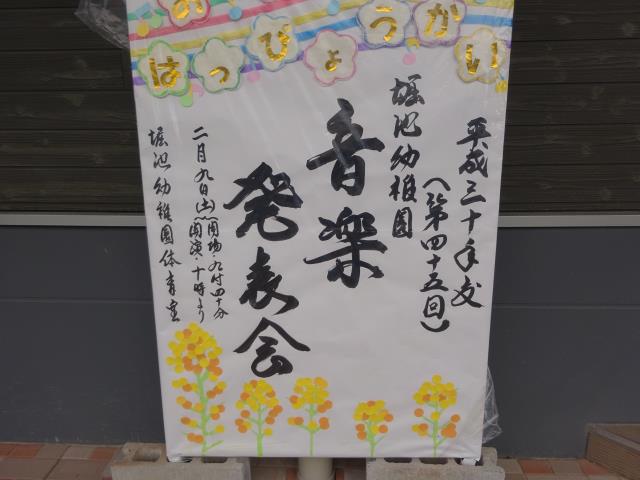 お
はっぴょうかい
平成三十年度
(第四十五回)
堀池幼稚園
音楽
発表会
二月九日(土)開場・九時四十分
開演・十時より
堀池幼稚園体育室